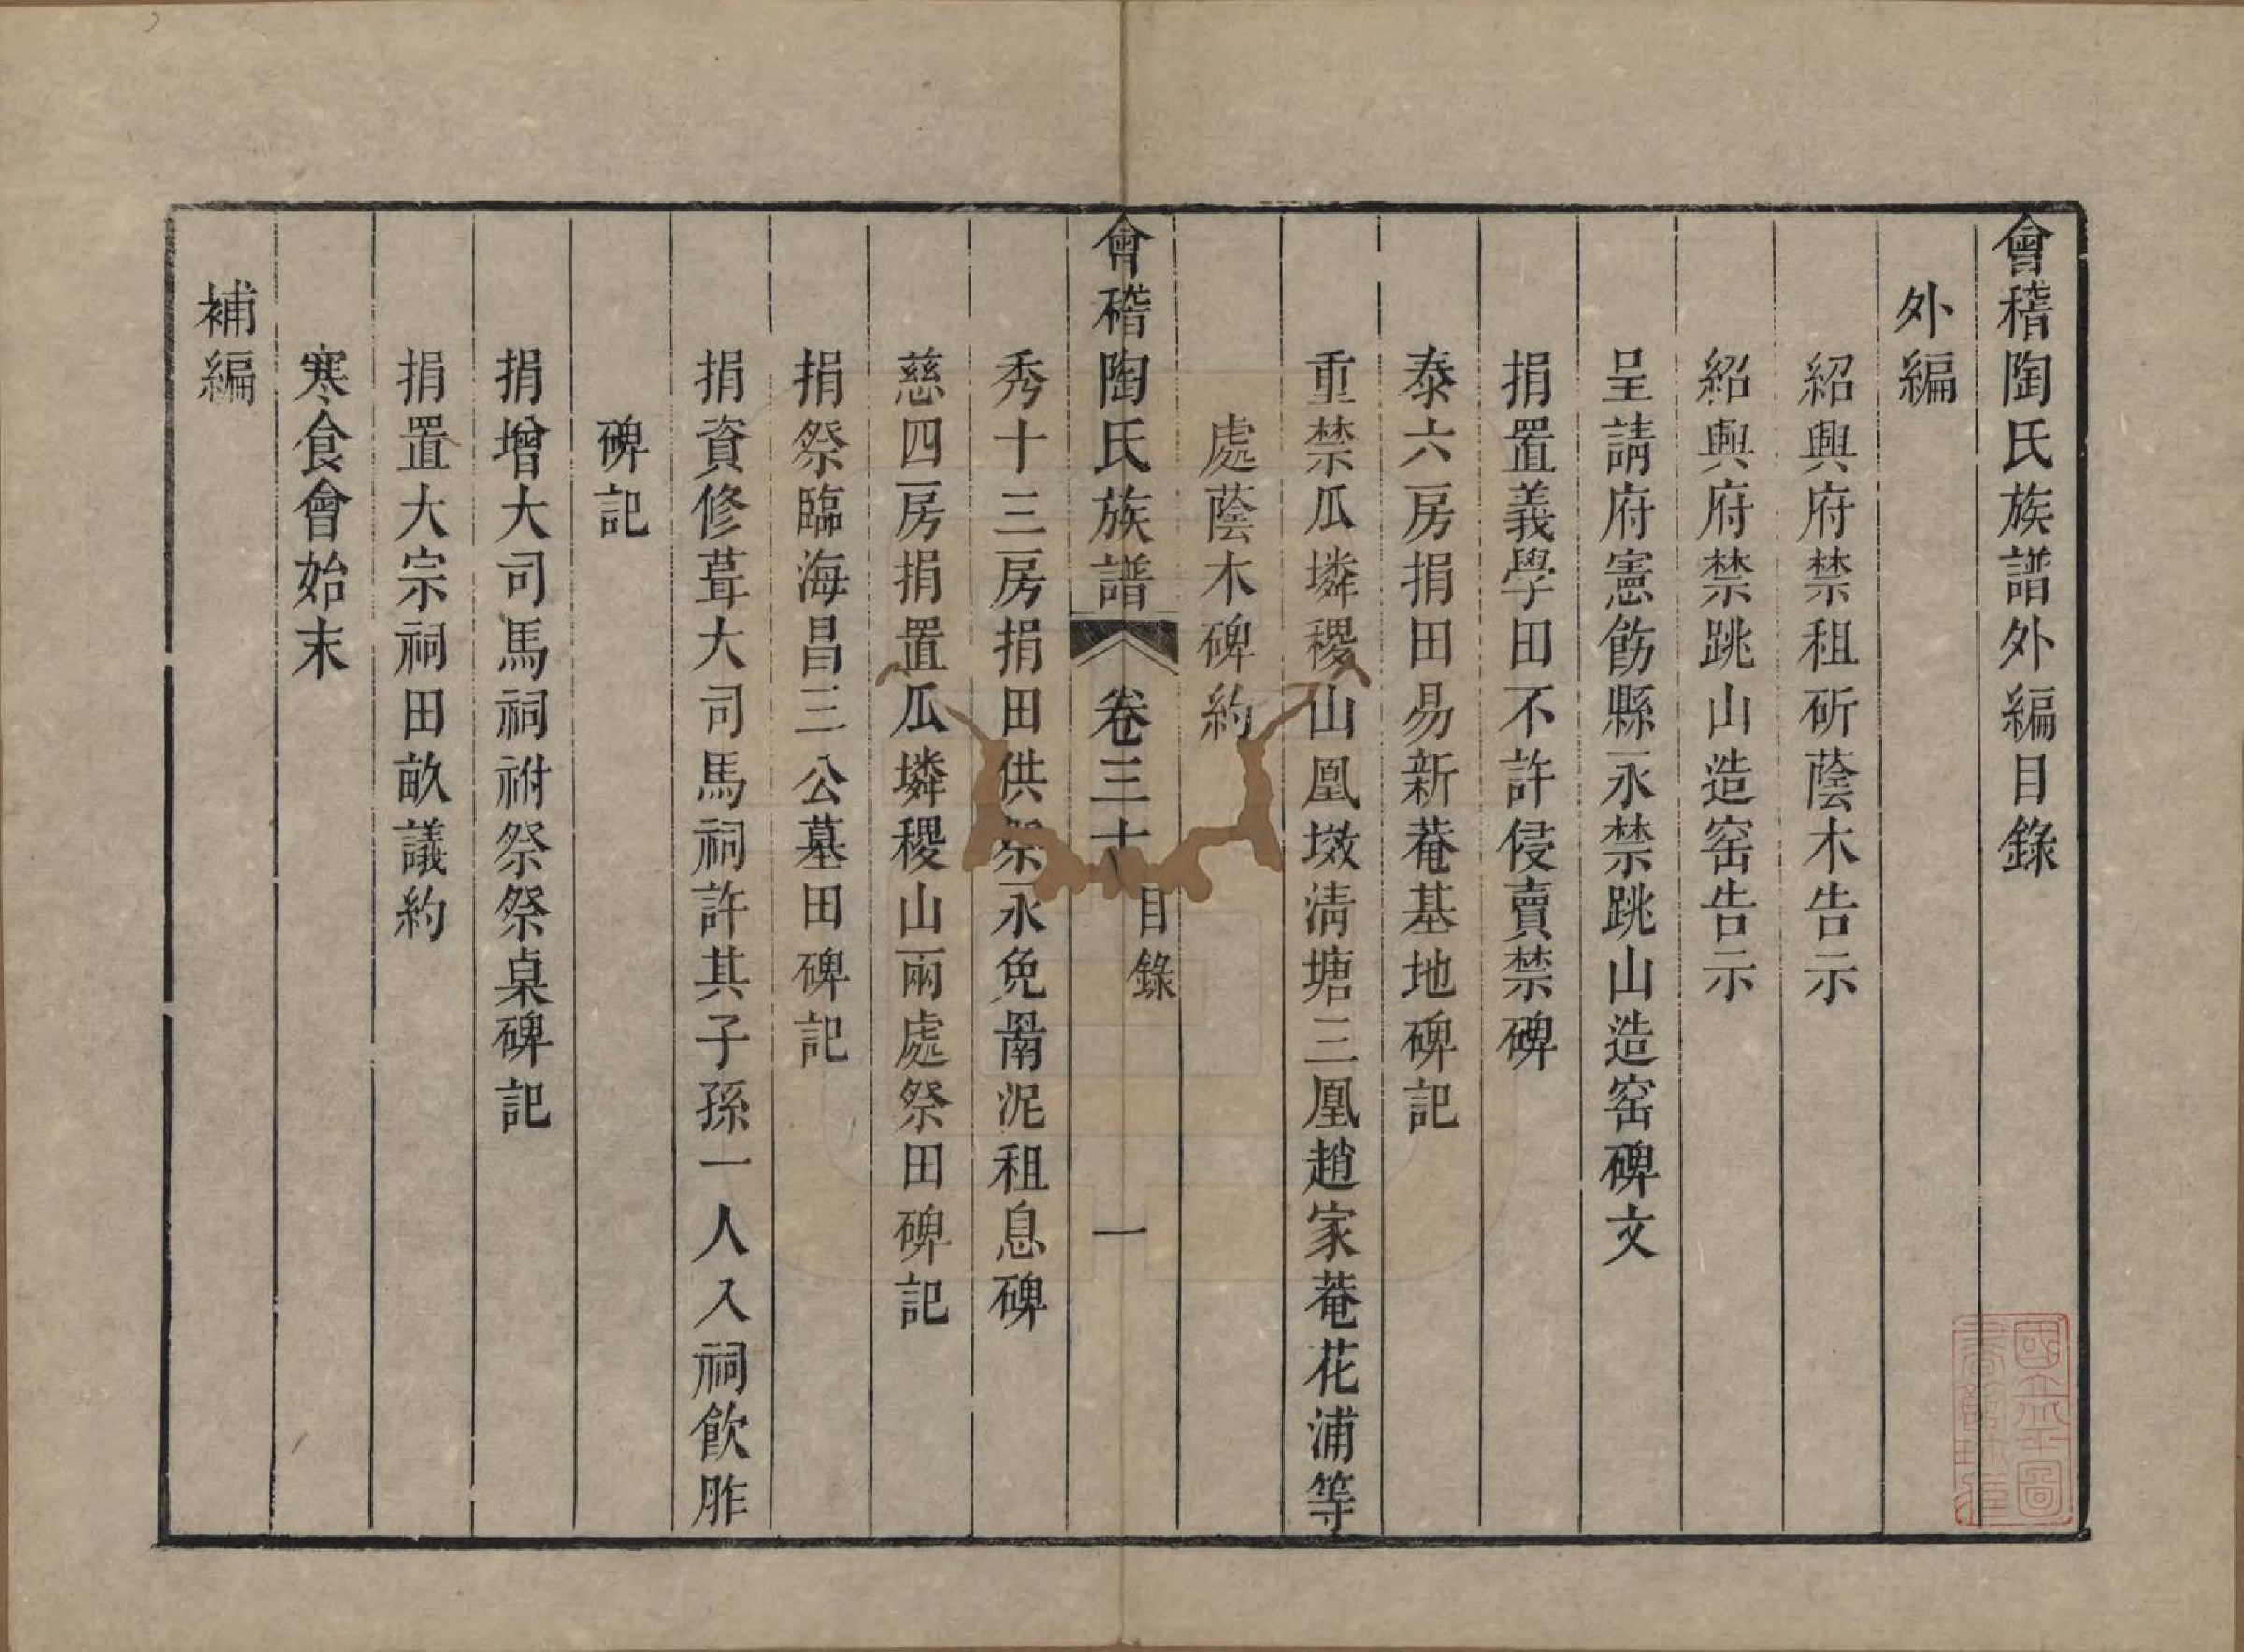 會稽陶氏族譜外編目錄
外編
紹興府禁租斫蔭木告示
紹興府禁跳山造窑告示
呈請府憲飭縣永禁跳山造窑碑文
捐置義學田不許侵賣禁碑
泰六房捐田易新菴基地碑記
重禁瓜墸稷山凰墩淸塘三凰趙家菴花浦等
處蔭木碑約
會稽陶氏族譜 卷三十 目錄 一
秀十三房捐田供祭永免罱泥租息碑
慈四房捐置瓜墸稷山兩處祭田碑記
捐祭臨海昌三公墓田碑記
捐資修葺大司馬祠許其子孫一人入祠飮胙
碑記
捐增大司馬祠祔祭祭桌碑記
捐置大宗祠田畝議約
寒食會始末
補編
國立北平圖書館珍藏